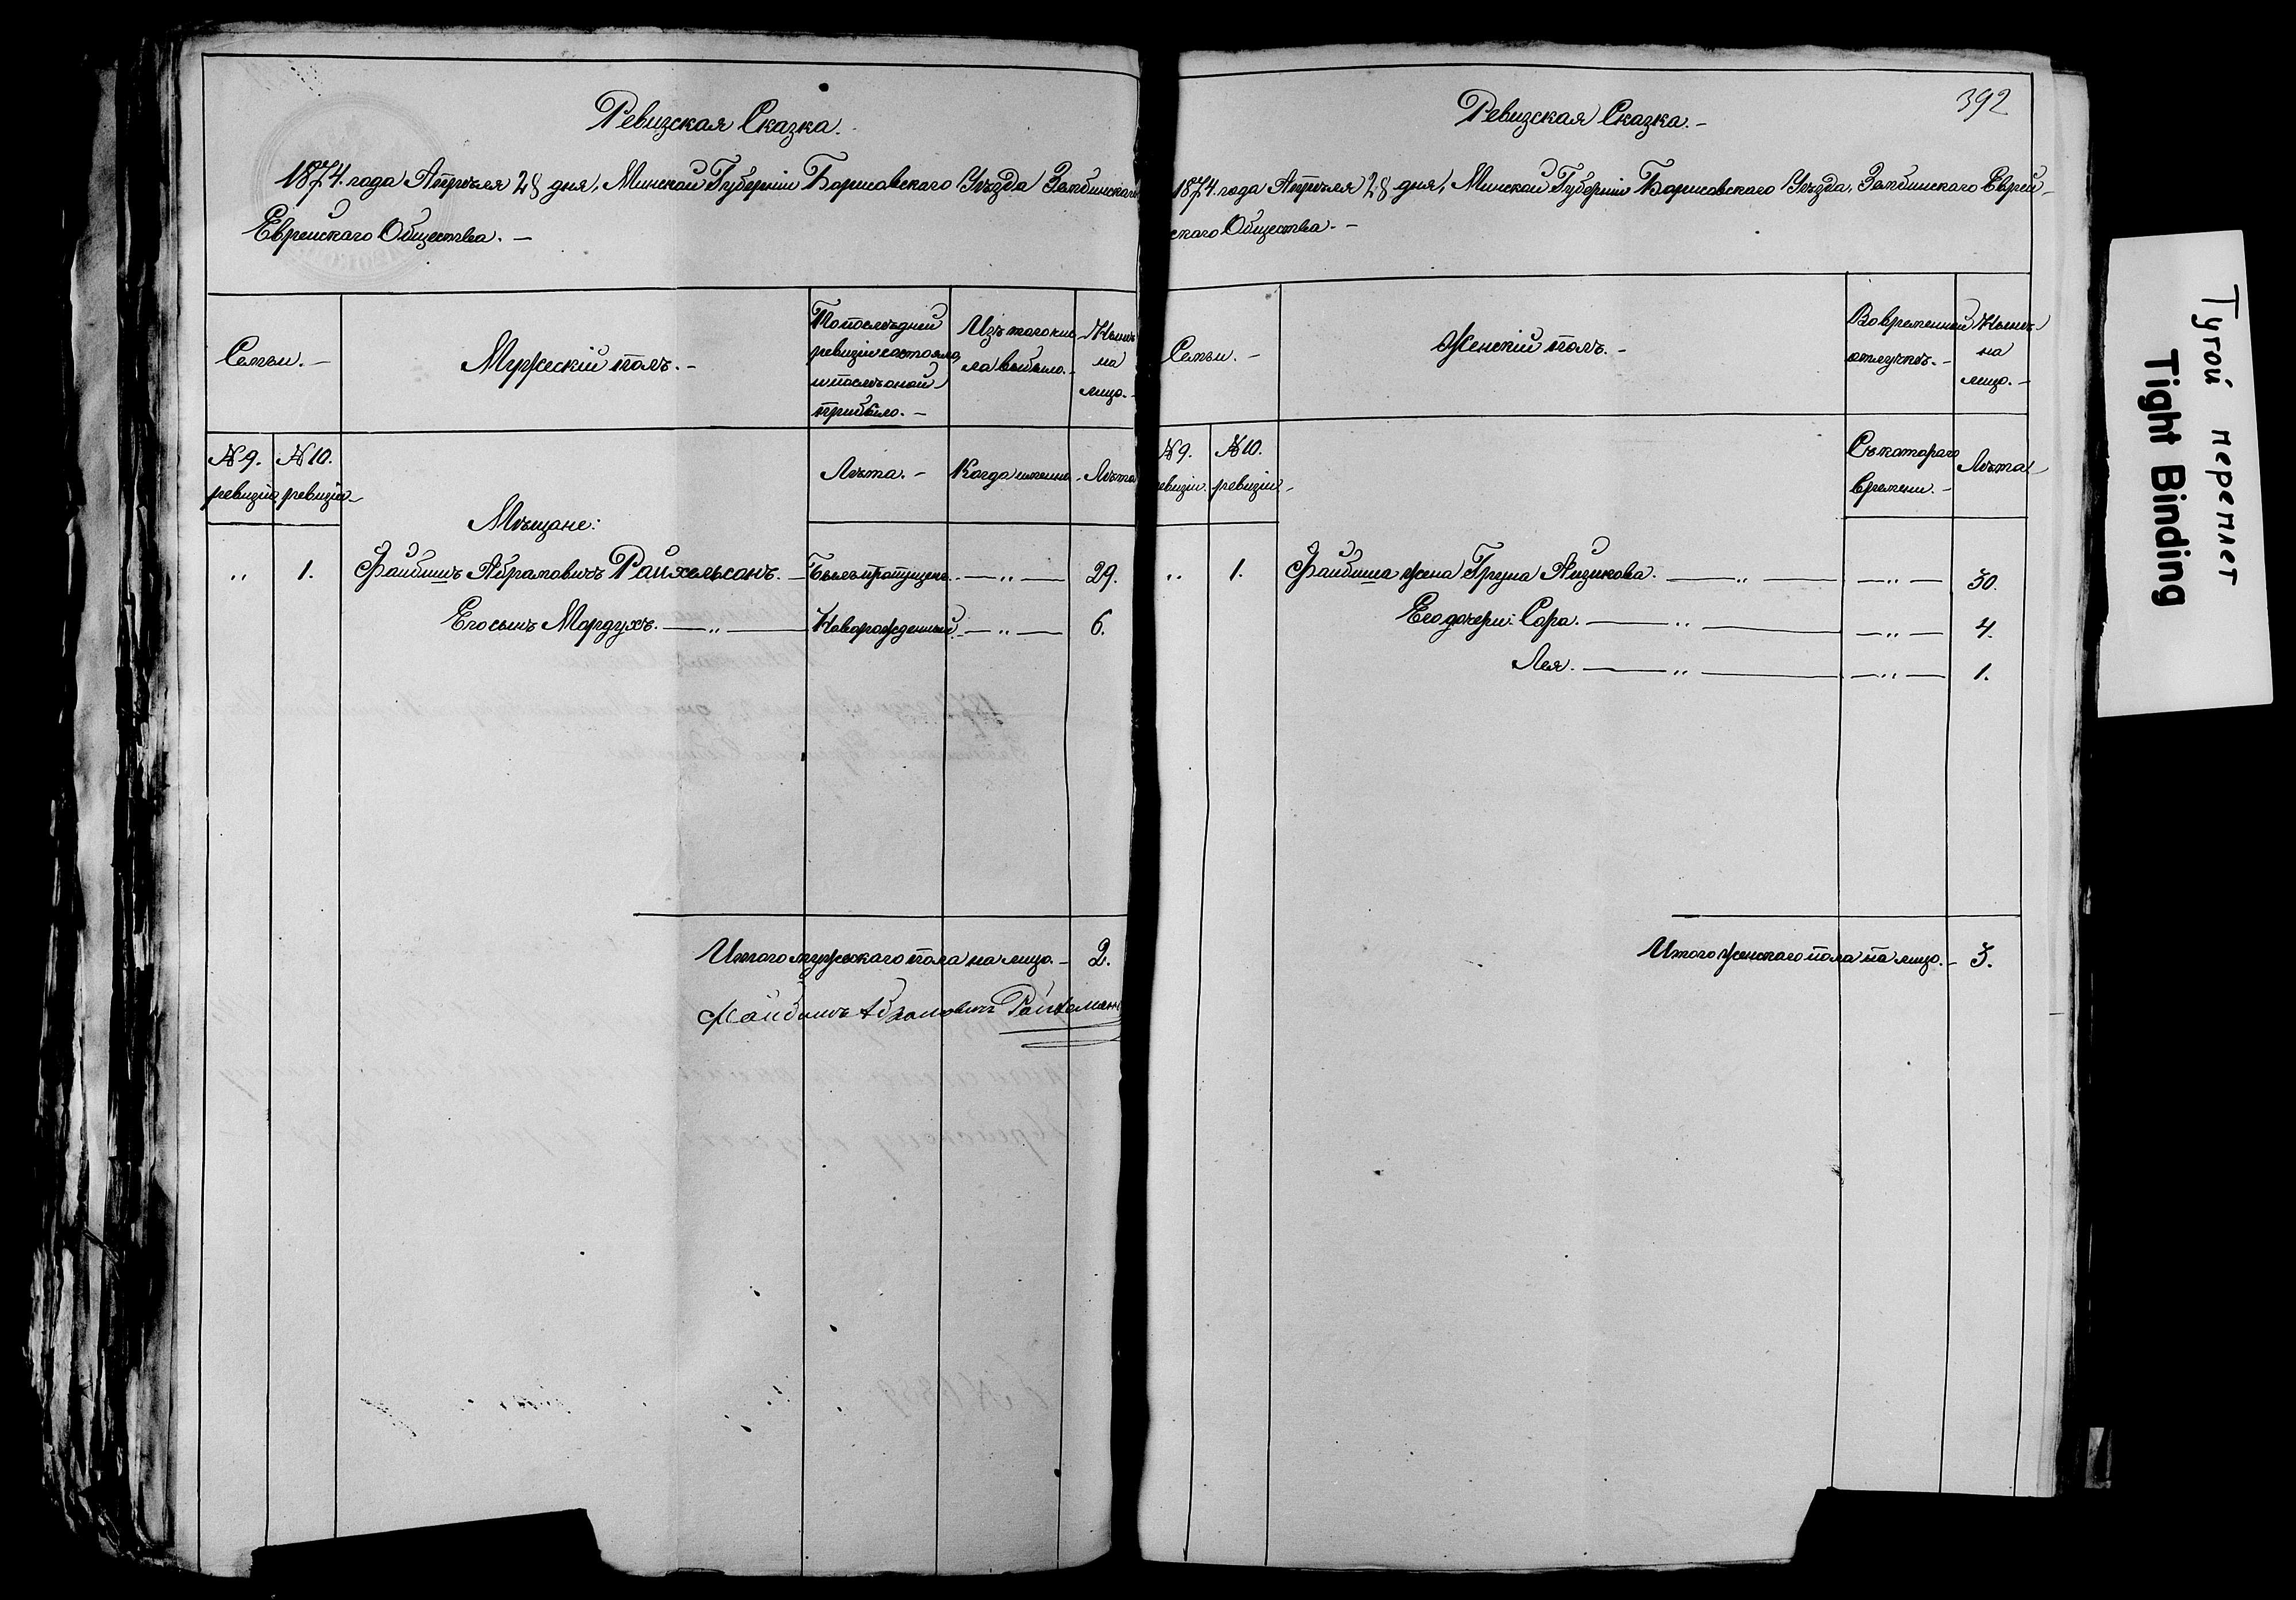 Ревизская Сказка.
1874. года Апрѣля 28 дня, Минской Губерніи Борисовскаго Уѣзда Зембинскаго
Еврейскаго Общества. –
Семьи. –
Мужескій полъ. –
По послѣдней
ревизіи состояло,
и послѣ оной
прибыло. –
Изъ того чис
ла выбыло. –
Нынѣ
на
лицо. –
№ 9.
ревизіи
№ 10.
ревизіи –
Лѣта. –
Когда именно
Лѣта
Мѣщане:
" 1. Файбишъ Абрамовичъ Райхельсонъ. – Былъ пропущенъ. – " – 29.
Его сынъ Мордухъ. – " – Новорожденный. – " – 6.
Итого мужескаго пола на лицо. – 2.
Файбишъ Абрамовичъ
392
Ревизская Сказка. –
1874. года Апрѣля 28 дня, Минской Губерніи Борисовскаго Уѣзда, Зембинскаго Еврей –
скаго Общества. –
Семьи. –
Женскій полъ. –
Во временной
отлучкѣ. –
Нынѣ
на
лицо. –
№ 9.
ревизіи.
№ 10.
ревизіи –
Съ котораго
времени. –
Лѣта
" 1. Файбиша жена Груна Айзикова. – " – – " – 30.
Его дочери: Сора. – " – – " – 4.
Лея. – " – – " – 1.
Итого женскаго пола на лицо. – 3.
Тугой переплет
Tight Binding